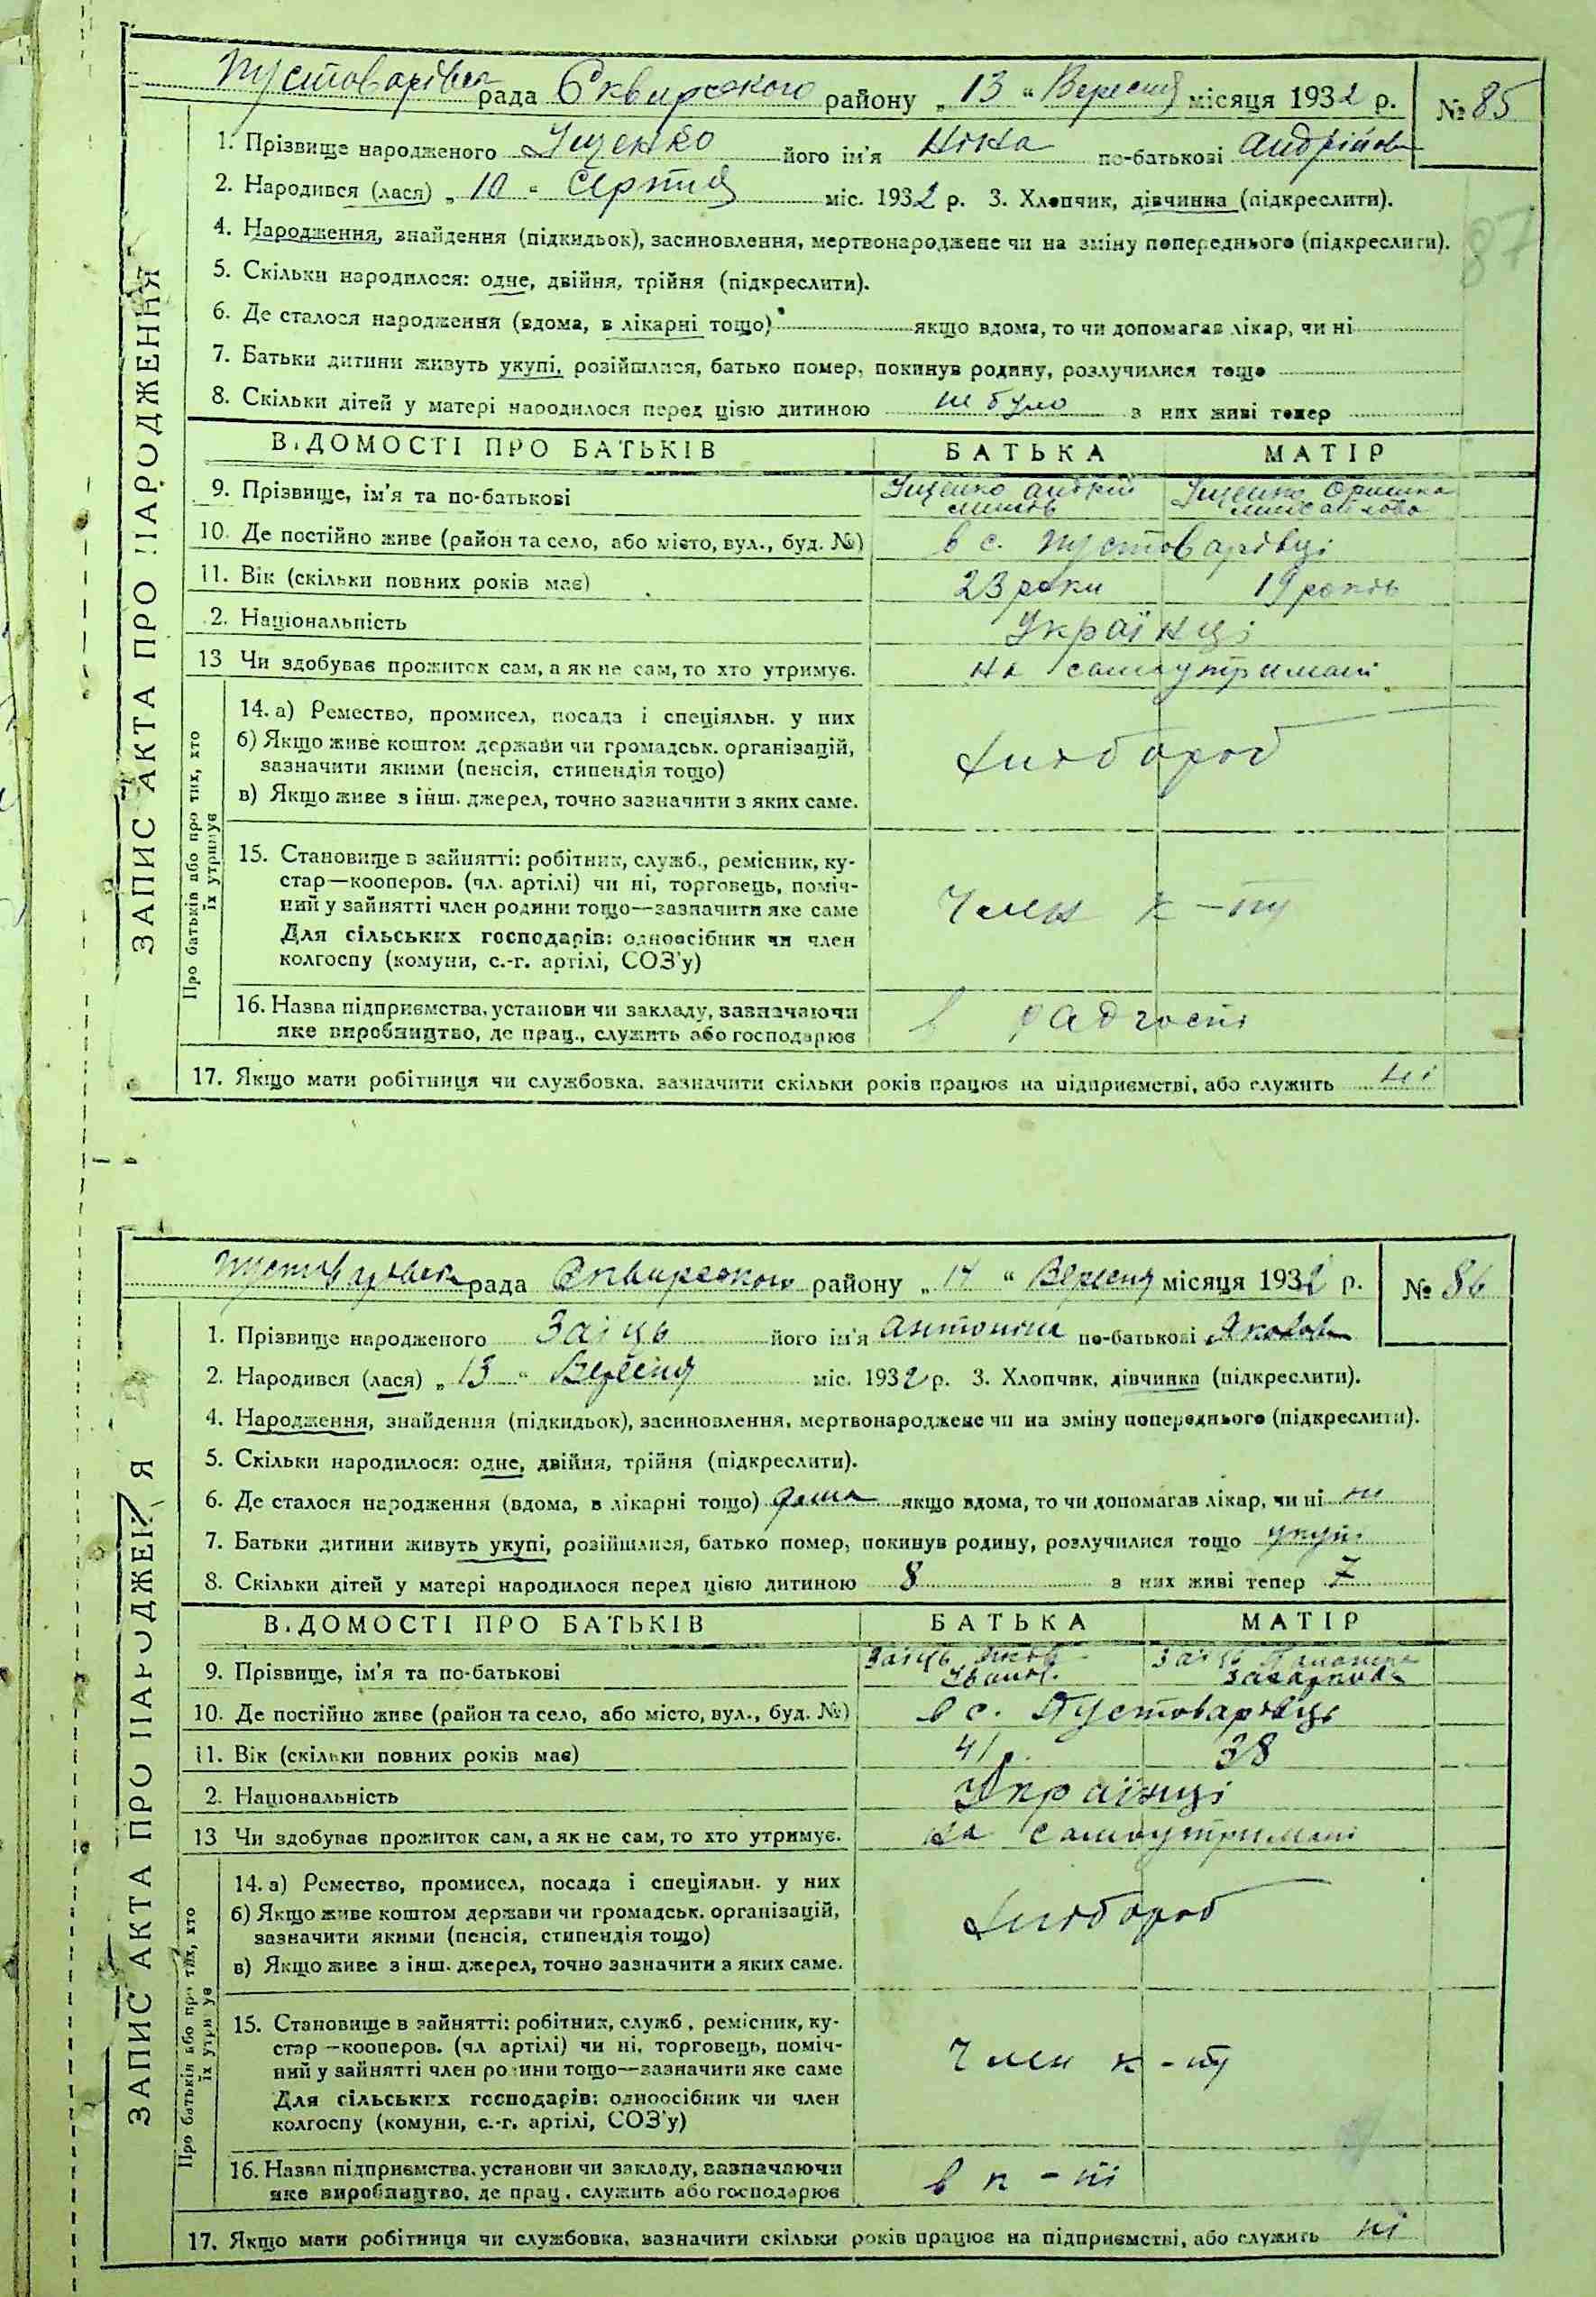 Пустоварівська рада Сквирського району „13" Вересня місяця 1932 р. № 85
1. Прізвище народженого Іщенко його ім'я Ніна по-батькові Андрійов
2. Народився (лася) „10" Серпня міс. 1932 р. 3. Хлопчик, дівчинка (підкреслити).
4. Народження, знайдення (підкидьок), засиновлення, мертвонароджене чи на зміну попереднього (підкреслити).
87
5. Скільки народилося: одне, двійня, трійня (підкреслити).
6. Де сталося народження (вдома, в лікарні тощо) якщо вдома, то чи допомагав лікар, чи ні
7. Батьки дитини живуть укупі, розійшлися, батько помер, покинув родину, розлучилися тощо
8. Скільки дітей у матері народилося перед цією дитиною не було з них живі тепер
ЗАПИС АКТА ПРО НАРОДЖЕННЯ
ВІДОМОСТІ ПРО БАТЬКІВ БАТЬКА МАТІР
9. Прізвище, ім'я та по-батькові Іщенко Андрій Іщенко Оришка
Михайлова
10. Де постійно живе (район та село, або місто, вул., буд. №) в с. Пустоварівці
11. Вік (скільки повних років має) 23 роки 19 років
2. Національність Українці
13 Чи здобуває прожиток сам, а як не сам, то хто утримує. на самоутримані
Про батьків або про тих, хто
їх утримує
14. а) Ремество, промисел, посада і спеціяльн. у них
б) Якщо живе коштом держави чи громадськ. організацій,
зазначити якими (пенсія, стипендія тощо) хлібороб
в) Якщо живе з інш. джерел, точно зазначити з яких саме.
15. Становище в зайнятті: робітник, служб., ремісник, ку-
стар—кооперов. (чл. артілі) чи ні, торговець, поміч-
ний у зайнятті член родини тощо—зазначити яке саме член к-ту
Для сільських господарів: одноосібник чи член
колгоспу (комуни, с.-г. артілі, СОЗ'у)
16. Назва підприємства, установи чи закладу, зазначаючи
яке виробництво, де прац., служить або господарює в радгоспі
17. Якщо мати робітниця чи службовка, зазначити скільки років працює на підприємстві, або служить ні
Пустоварівська рада Сквирського району „14" Вересня місяця 1932 р. № 86
1. Прізвище народженого Заїць його ім'я Антоніна по-батькові Яковов
2. Народився (лася) „13" Вересня міс. 1932 р. 3. Хлопчик, дівчинка (підкреслити).
4. Народження, знайдення (підкидьок), засиновлення, мертвонароджене чи на зміну попереднього (підкреслити).
5. Скільки народилося: одне, двійня, трійня (підкреслити).
6. Де сталося народження (вдома, в лікарні тощо) дома якщо вдома, то чи допомагав лікар, чи ні ні
7. Батьки дитини живуть укупі, розійшлися, батько помер, покинув родину, розлучилися тощо укупі
8. Скільки дітей у матері народилося перед цією дитиною 8 з них живі тепер 7
ЗАПИС АКТА ПРО НАРОДЖЕННЯ
ВІДОМОСТІ ПРО БАТЬКІВ БАТЬКА МАТІР
9. Прізвище, ім'я та по-батькові Заїць Яків Заїць
Іванов. Захарков
10. Де постійно живе (район та село, або місто, вул., буд. №) в с. Пустоварівць
11. Вік (скільки повних років має) 41 р. 38
2. Національність Українці
13 Чи здобуває прожиток сам, а як не сам, то хто утримує. на самоутримані
Про батьків або про тих, хто
їх утримує
14. а) Ремество, промисел, посада і спеціяльн. у них
б) Якщо живе коштом держави чи громадськ. організацій, хлібороб
зазначити якими (пенсія, стипендія тощо)
в) Якщо живе з інш. джерел, точно зазначити з яких саме.
15. Становище в зайнятті: робітник, служб., ремісник, ку-
стар—кооперов. (чл артілі) чи ні, торговець, поміч-
ний у зайнятті член родини тощо—зазначити яке саме член к-ту
Для сільських господарів: одноосібник чи член
колгоспу (комуни, с.-г. артілі, СОЗ'у)
16. Назва підприємства, установи чи закладу, зазначаючи
яке виробництво, де прац., служить або господарює в к-ті
17. Якщо мати робітниця чи службовка, зазначити скільки років працює на підприємстві, або служить ні